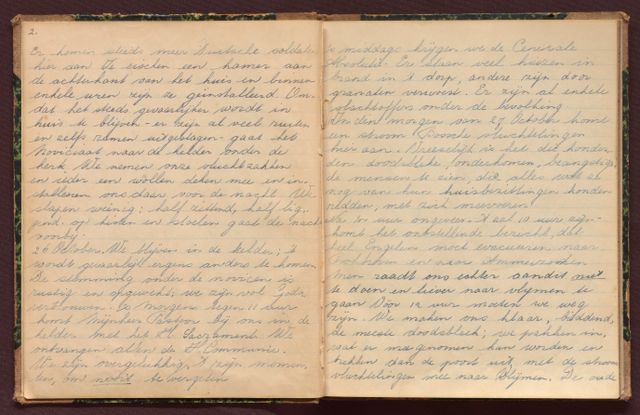 2.
Er komen steeds meer Duitsche soldaten
hier aan. Ze eischen een kamer aan
de achterkant van het huis en binnen
enkele uren zijn ze geïnstalleerd. Om-
dat het steeds gevaarlijker wordt in
huis te blijven - er zijn al veel ruiten
en zelfs ramen uitgeslagen - gaat het
Noviciaat naar de kelder onder de
kerk. We nemen onze vluchtzakken
en ieder een wollen deken mee en in-
stalleeren ons daar, voor de nacht. We
slapen weinig: half zittend, half lig-
gend, op kisten en stoelen gaat de nacht
voorbij.
26 October. We blijven in de kelder; 't
wordt gevaarlijk ergens anders te komen.
De stemming onder de novicen is
rustig en opgewekt; we zijn vol Gods-
vertrouwen. 's Morgens tegen 11 uur
komt Mijnheer Pastoor bij ons in de
kelder met het H. Sacrament. We
ontvangen allen de H. Communie.
We zijn overgelukkig, 't zijn momen-
ten, om nooit te vergeten
's middags krijgen we de Generale
Absolutie. Er staan veel huizen in
brand in 't dorp, andere zijn door
granaten verwoest. Er zijn al enkele
slachtoffers onder de bevolking
In den morgen van 27 October komt
een stroom vluchtelingen
hier aan. Vreeselijk is het die honder-
den doodsbleke, beangstigde
menschen te zien, die alles wat ze
nog van hun huisbezittingen konden
redden, met zich meevoeren.
10 uur ongeveer. 't Zal 10 uur zijn -
komt het ontstellende bericht, dat
heel Engelen moet evacueeren naar
en Ammerzoden
Men raadt ons echter aan dit niet
te doen en liever naar Vlijmen te
gaan Vóór 12 uur moeten we weg
zijn. We maken ons klaar, biddend,
de meeste doodsbleek; we pakken in,
wat er meegenomen kan worden en
trekken dan de poort uit, met de stroom
vluchtelingen mee naar Vlijmen. De oude